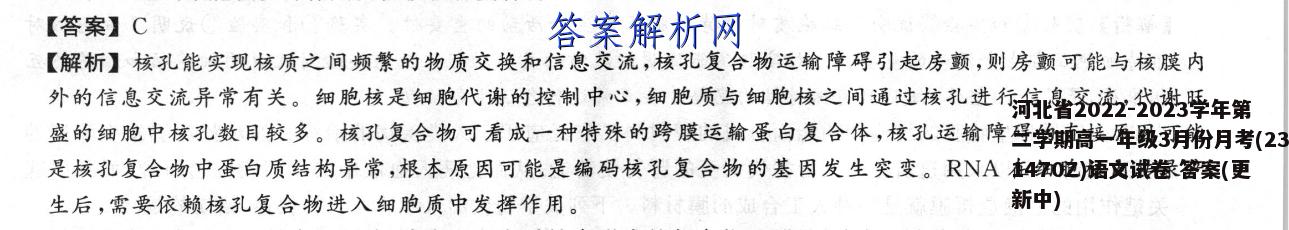 【答案】C
答案解析网
【解析】核孔能实现核质之间频繁的物质交换和信息交流,核孔复合物运输障碍引起房颤,则房颤可能与核膜内
外的信息交流异常有关。细胞核是细胞代谢的控制中心,细胞质与细胞核之间通过核孔进行信息交流,代谢旺
盛的细胞中核孔数目较多。核孔复合物可看成一种特殊的跨膜运输蛋白复合体,核孔运输障碍的直接原因可能
是核孔复合物中蛋白质结构异常,根本原因可能是编码核孔复合物的基因发生突变。RNA
生后,需要依赖核孔复合物进入细胞质中发挥作用。
河北省2022-2023学年第
二学期高一年级3月份月考(23
1470Z)语文试卷 答案(更
新中)